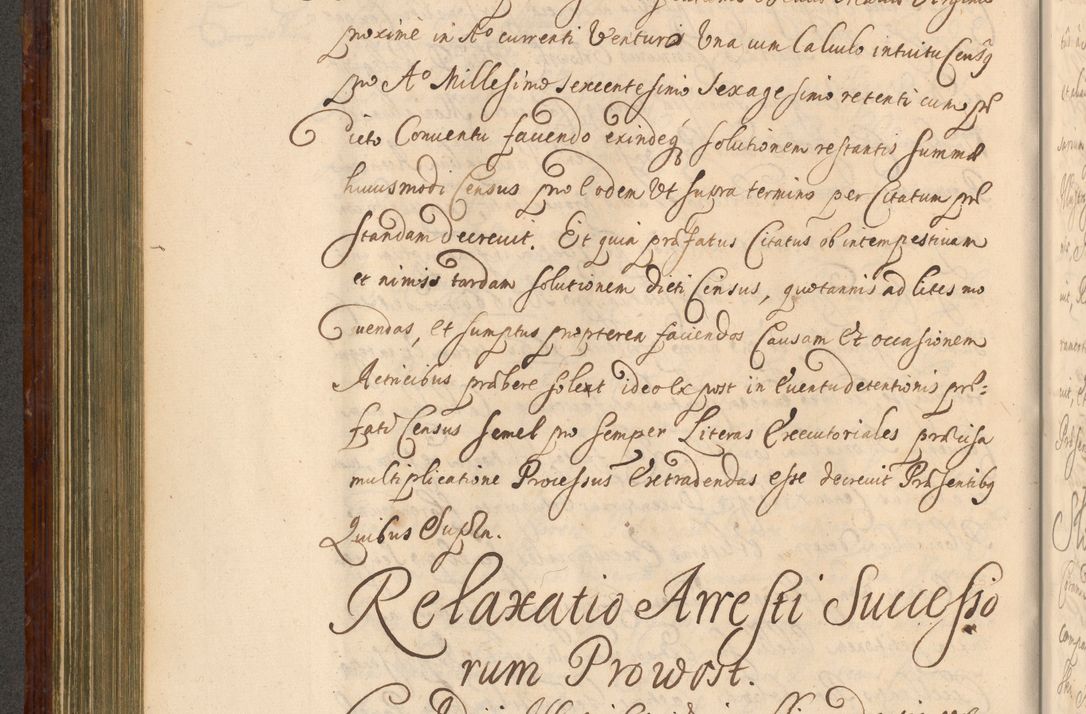 proxime in Ao currenti Venturo Una cum Calculo intuitu Censq
pro Ao Millesimo Sexcentesimo Sexagesimo retenti cum præ
dicto Conventu favendo exindeq solutionem restantis summæ
huiusmodi Census pro Eodem Ut supra termino per Citatum præ
standam decrevit. Et quia præfatus Citatus ob intempestivam
et nimis tardam solutionem dicti Census, quotannis ad lites mo
vendas, et sumptus propterea faciendos Causam Et occasionem
Actricibus præbere solent ideo Ex post in Eventu detentionis præ-
fati Census semel pro semper Literas Executoriales præcisa
multiplicatione Processus Extradendas esse decrevit Præsentibq
Quibus Supra.
Relaxatio Arresti Successo
rum Prowost.